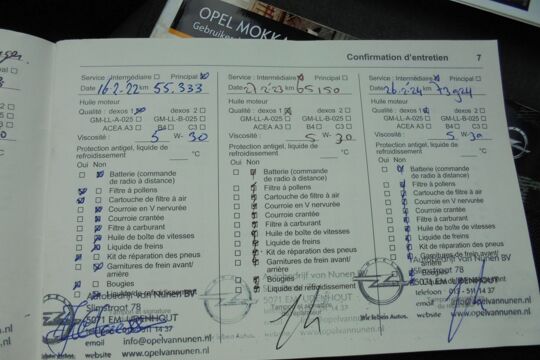 OPEL MOKKA
Gebruikers
Confirmation d'entretien 7
Service : Intermédiaire Principal
Date 16.2.22 km 55.333
Huile moteur
Qualité : dexos 1 dexos 2
GM-LL-A-025 GM-LL-B-025
ACEA A3 B4 C3
Viscosité : 5 W- 30
Protection antigel, liquide de
refroidissement °C
Oui Non
Batterie (commande
de radio à distance)
Filtre à pollens
Cartouche de filtre à air
Courroie en V nervurée
Courroie crantée
Filtre à carburant
Huile de boîte de vitesses
Liquide de freins
Kit de réparation des pneus
Garnitures de frein avant/
arrière
Bougies
Liquide de refroidissement
Autobedrijf van Nunen BV
Slimstraat 78
5071 EM UDENHOUT
email info@opelvannunen.nl
website www.opelvannunen.nl
Service : Intermédiaire Principal
Date 27.2.23 km 65150
Huile moteur
Qualité : dexos 1 dexos 2
GM-LL-A-025 GM-LL-B-025
ACEA A3 B4 C3
Viscosité : 5 W- 30
Protection antigel, liquide de
refroidissement °C
Oui Non
Batterie (commande
de radio à distance)
Filtre à pollens
Cartouche de filtre à air
Courroie en V nervurée
Courroie crantée
Filtre à carburant
Huile de boîte de vitesses
Liquide de freins
Kit de réparation des pneus
Garnitures de frein avant/
arrière
Bougies
Liquide de refroidissement
5071 EM UDENHOUT
Wir leben Autos.
Service : Intermédiaire Principal
Date 26.2.24 km 73924
Huile moteur
Qualité : dexos 1 dexos 2
GM-LL-A-025 GM-LL-B-025
ACEA A3 B4 C3
Viscosité : 5 W- 30
Protection antigel, liquide de
refroidissement °C
Oui Non
Batterie (commande
de radio à distance)
Filtre à pollens
Cartouche de filtre à air
Courroie en V nervurée
Courroie crantée
Filtre à carburant
Huile de boîte de vitesses
Liquide de freins
Kit de réparation des pneus
Garnitures de frein avant/
arrière
Bougies
Autobedrijf van Nunen BV
Slimstraat 78
5071 EM UDENHOUT
telefoon 013 - 511 14 37
email info@opelvannunen.nl
website www.opelvannunen.nl
Wir leben Autos.